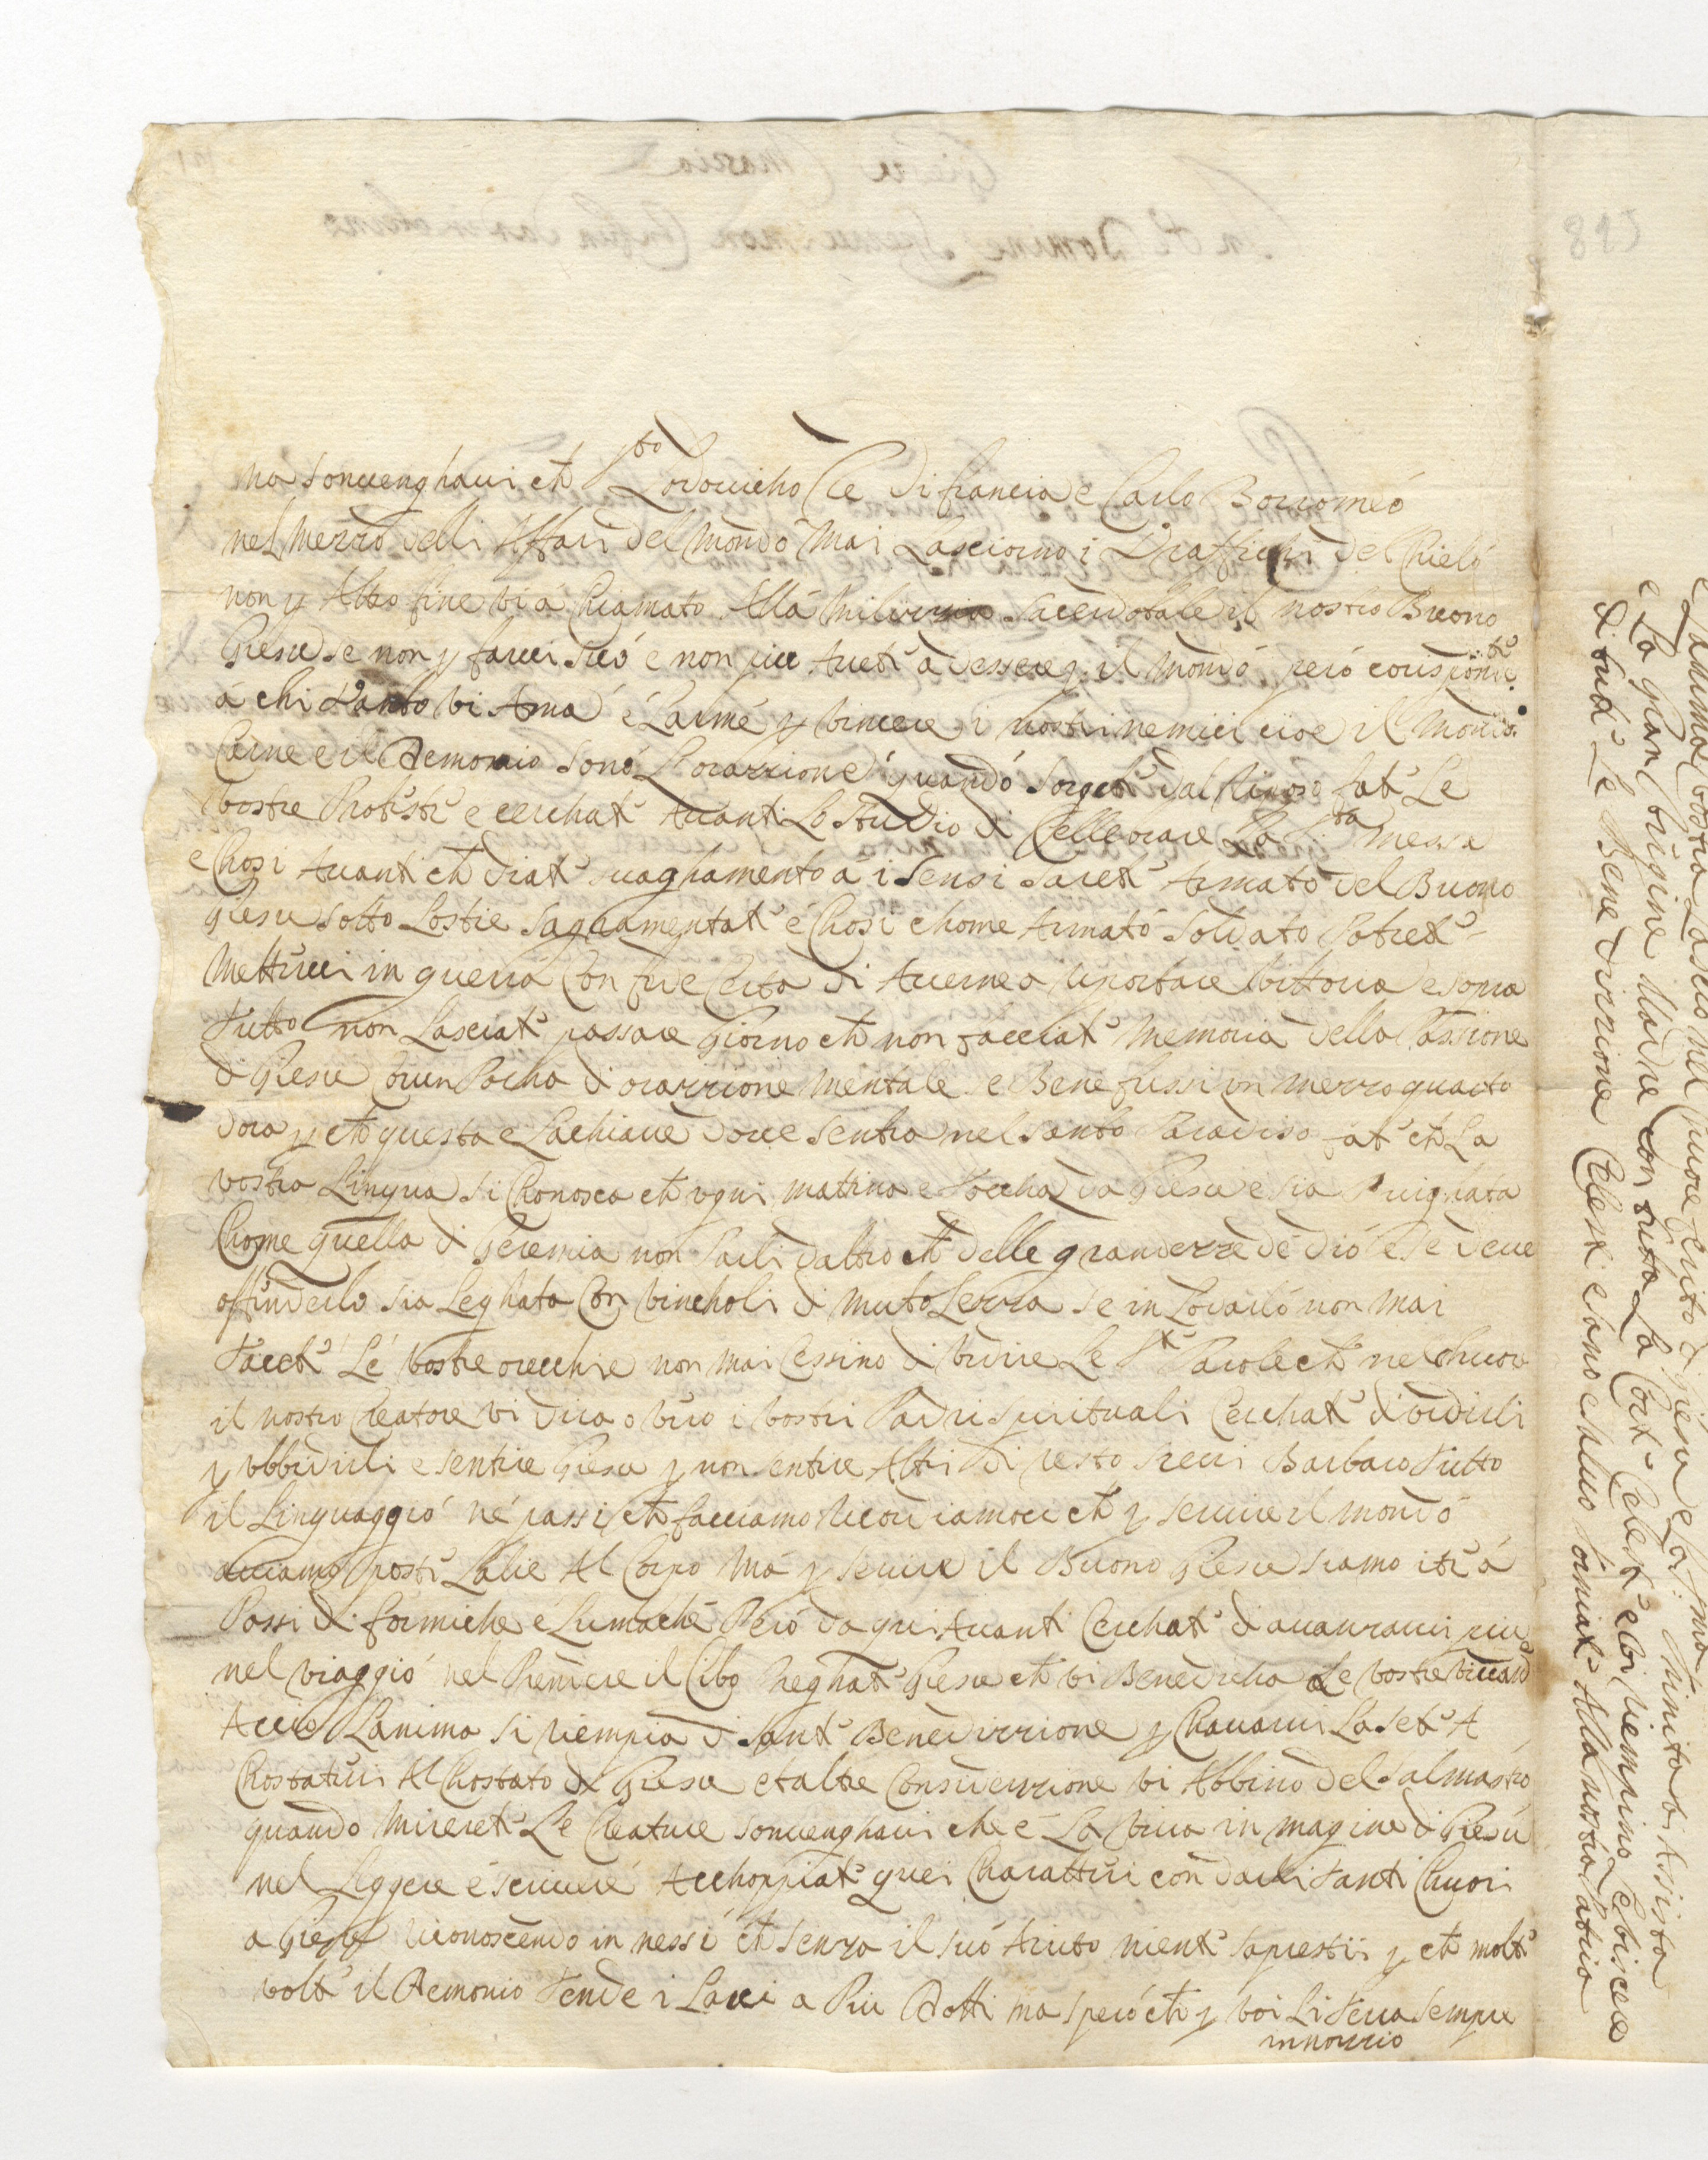 ma souuenghaui ch S.to Lodouicho Re di francia e Carlo Borromeó
nel merro delli Affari del Mondo Mai Lasciorno i Traffichi del Chieló
non p Altro fine vi á Chiamato Alla Milirria Sacerdotale il nostro Buono
Giesu se non p farui Suó e non piu Aueti á dessere p il Mondó peró
á chi tanto vi Ama é Larme p vincere i nostri nemici cioe il Mondo
Carne e il Demonio sonó Lorarrione quandó sorgete dal Riposo fate Le
vostre Proteste e cerchate Auanti Lo studio di Cellebrare La S.ta Messa
e Chosi Auanti ch diate suaghamento á i Sensi sarete Armato del Buono
Giesu sotto Lostie Sagramentate é Chosi chome Armató Soldato Potrete
Metterui in guerra Con fue Certa di Auerne a riportare Vittoria e sopra
tutto non Lasciate passare Giorno ch non facciate Memoria della Passione
di Giesu Con un Pocho di orarrione Mentale e Bene fussi un merro quarto
dora p ch questa e Lachiaue doue sentra nel santo Paradiso fate ch La
vostra Lingua si Chonosca ch ogni matina e Toccha da Giesu e sia Purighata
Chome quella di Geremia non Parli daltro ch delle granderre de Dió e se deue
offenderlo sia Leghata Con vincholi di Mutolerra se in Lodarló non mai
Taccte Lé vostre orecchie non mai Cessino di Vdire Le S.te Parole ch nel Chuore
il nostro Creatore vi dica o vero i vostri Padri spirituali Cerchate di vdirli
p vbbidirli e sentire Giesu p non sentire Altri di resto Sieui Barbaro Tutto
il Linguaggió né passi ch facciamo Ricordiamoci ch p seruire il mondó
Auiamo posti Lalie Al Corpo Má p seruire il Buono Giesu siamo iti á
Passi di formiche é Lumache Peró da qui Auanti Cerchate di auanrarui piu
nel viaggió nel Prendere il Cibo Preghate Giesu ch vi Benedicha Le vostre viuande
Accio Lanima si riempia di sante Benedirrione p Chauarui La sete A
Chostateui Al Chostato di Giesu et altre Consideurrione vi Abbino del Salmastro
quando Mirerete Le Creature souuenghaui che é La viua in magine di Giesú
nel Leggere é scriuere Acchoppiate quei Charatteri con darli tanti Chuori
a Giesu riconoscendo in nessi ch senza il suó Aiuto niente sapresti p ch molte
volte il Demonio Tende i Lacci a Piu Dotti ma speró ch p voi Li Terra sempre
in norrio
e Lanima vostra Lascio nel Chuore ferito di Giesu e La Trinita vi Assista
e La gran Vergine Madre con tuta La Corte Celeste e vi riempino Le viscere
di tute Le Bene dirrione Celeste e sano e saluo Torniate Alla nostra Patria